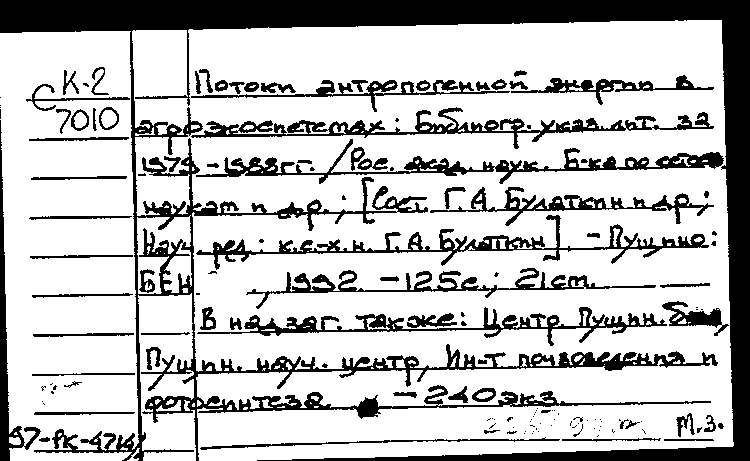 С К-2
7010
Потоки антропогенной энергии в
агроэкосистемах: Библиогр. указ. лит. за
1979-1988 гг. / Рос. акад. наук. Б-ка по естеств.
наукам и др.; [Сост. Г.А. Булаткин и др.;
Науч. ред.: к.с-х.н. Г.А. Булаткин]. - Пущино:
БЕН, 1992. - 125с.; 21см.
В надзаг. также: Центр. Пущин. б-ка,
Пущин. науч. центр, Ин-т почвоведения и
фотосинтеза. - 240экз.
97-РК-4714
М.З.